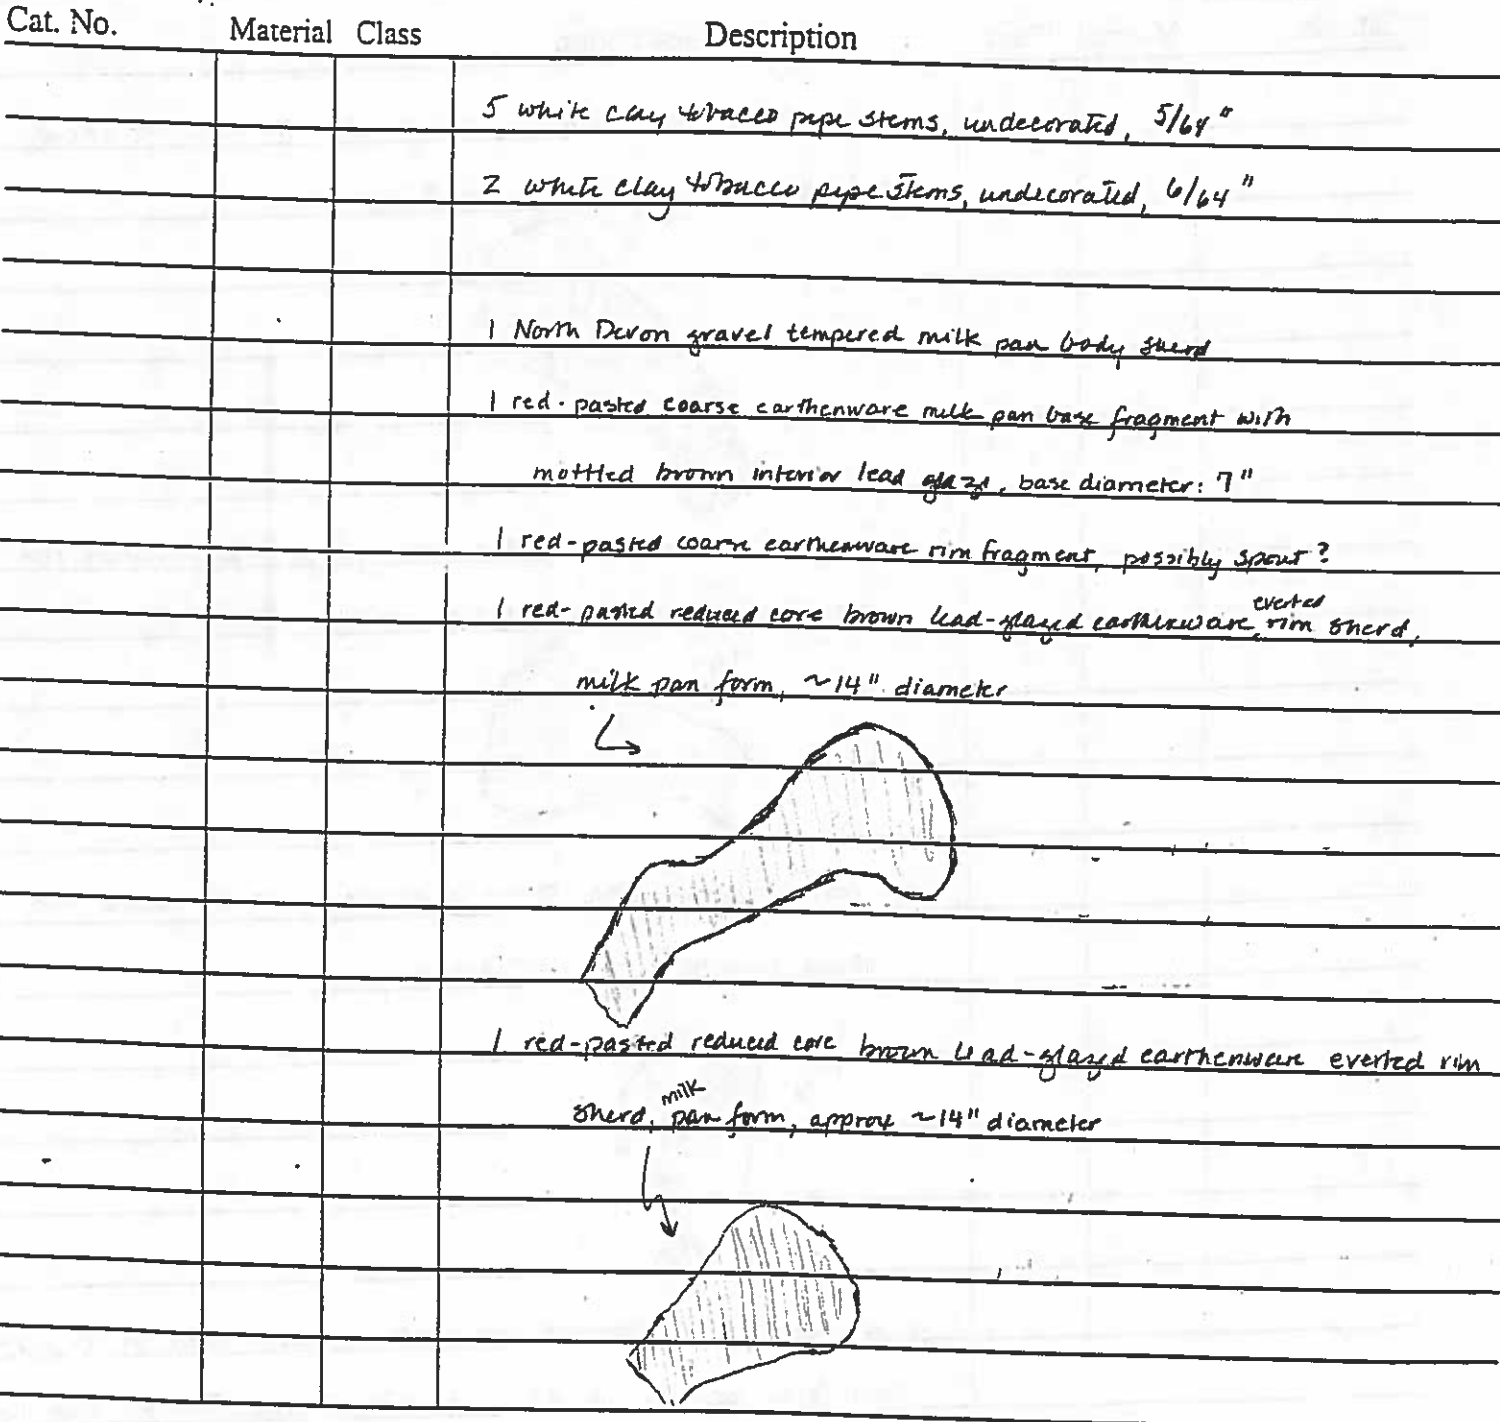 Cat. No. Material Class Description
5 white clay tobacco pipe stems, undecorated, 5/64"
2 white clay tobacco pipe stems, undecorated, 6/64"
1 North Devon gravel tempered milk pan body sherd
1 red-pasted coarse earthenware milk pan base fragment with
mottled brown interior lead glaze, base diameter: 7"
1 red-pasted coarse earthenware rim fragment, possibly spout?
1 red-pasted reduced core brown lead-glazed earthenware everted rim sherd,
milk pan form, ~14" diameter
1 red-pasted reduced core brown lead-glazed earthenware everted rim
sherd, milk pan form, approx ~14" diameter